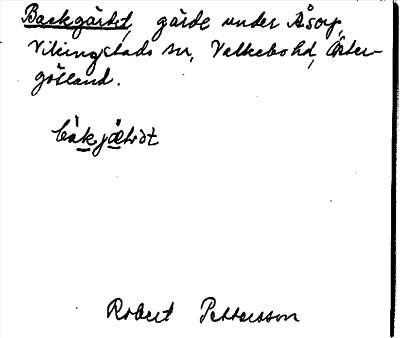 Backgärdet, gärde under Åsby,
Vikingstads sn, Valkebo hd, Öster-
götland.
Robert Pettersson